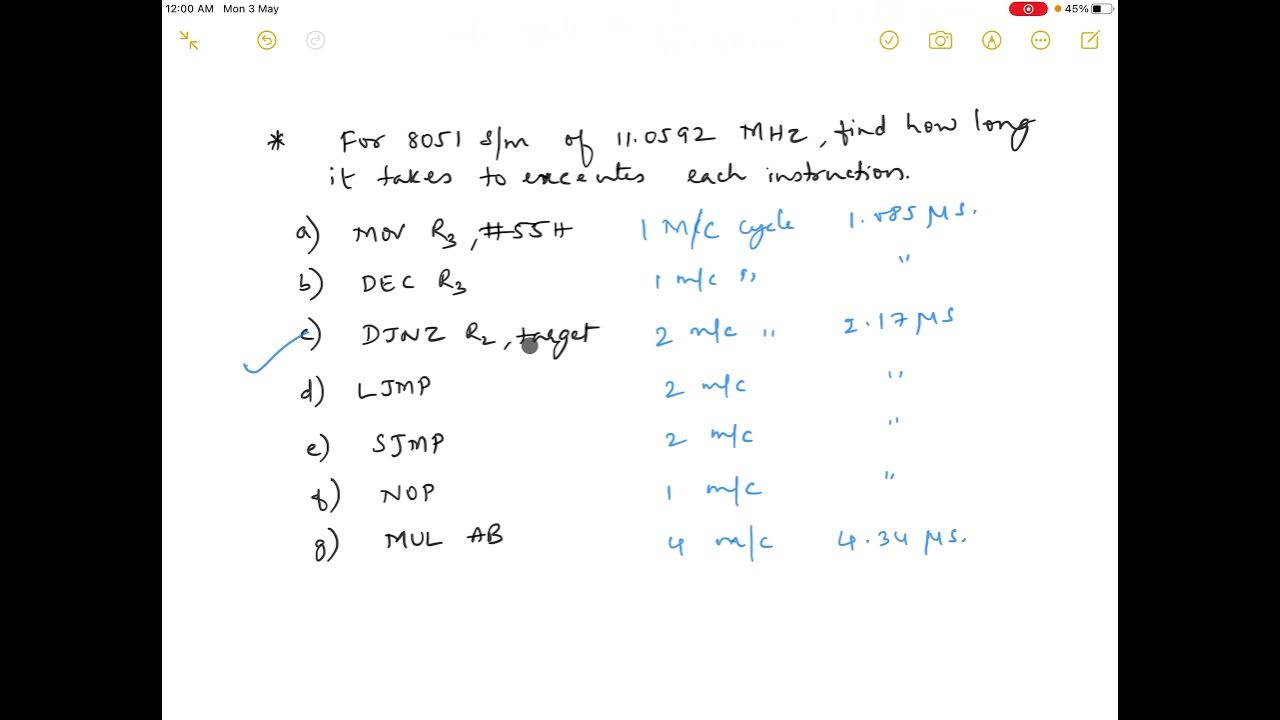 12:00 AM Mon 3 May 45%
* For 8051 s/m of 11.0592 MHz, find how long
it takes to executes each instruction.
a) MOV R3, #55H 1 M/C cycle 1.085 μs.
b) DEC R3 1 m/c " "
c) DJNZ R2, target 2 m/c " 2.17 μs
d) LJMP 2 m/c "
e) SJMP 2 m/c "
f) NOP 1 m/c "
g) MUL AB 4 m/c 4.34 μs.